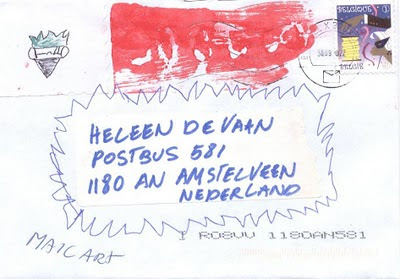 BELGIQUE 1
HELEEN DE VAAN
POSTBUS 581
1180 AN AMSTELVEEN
NEDERLAND
1180AN581
MAIL ART